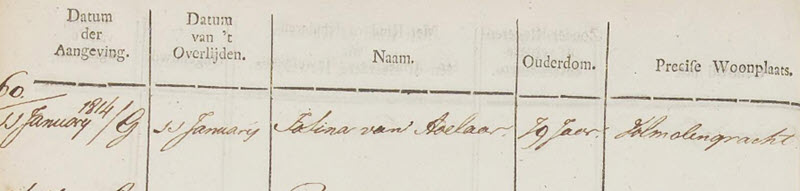 Datum der Aangeving. Datum van 't Overlijden. Naam. Ouderdom. Precise Woonplaats.
60
11 January 1814 / G 11 January van Aoelaar. 79 Jaar. Volmolengracht